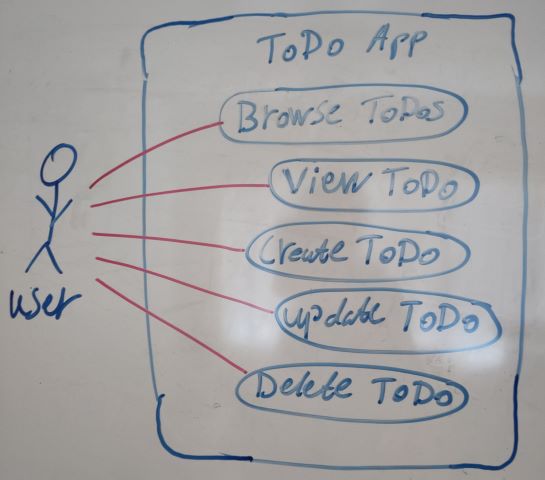 ToDo App
Browse ToDos
View ToDo
Create ToDo
update ToDo
Delete ToDo
user